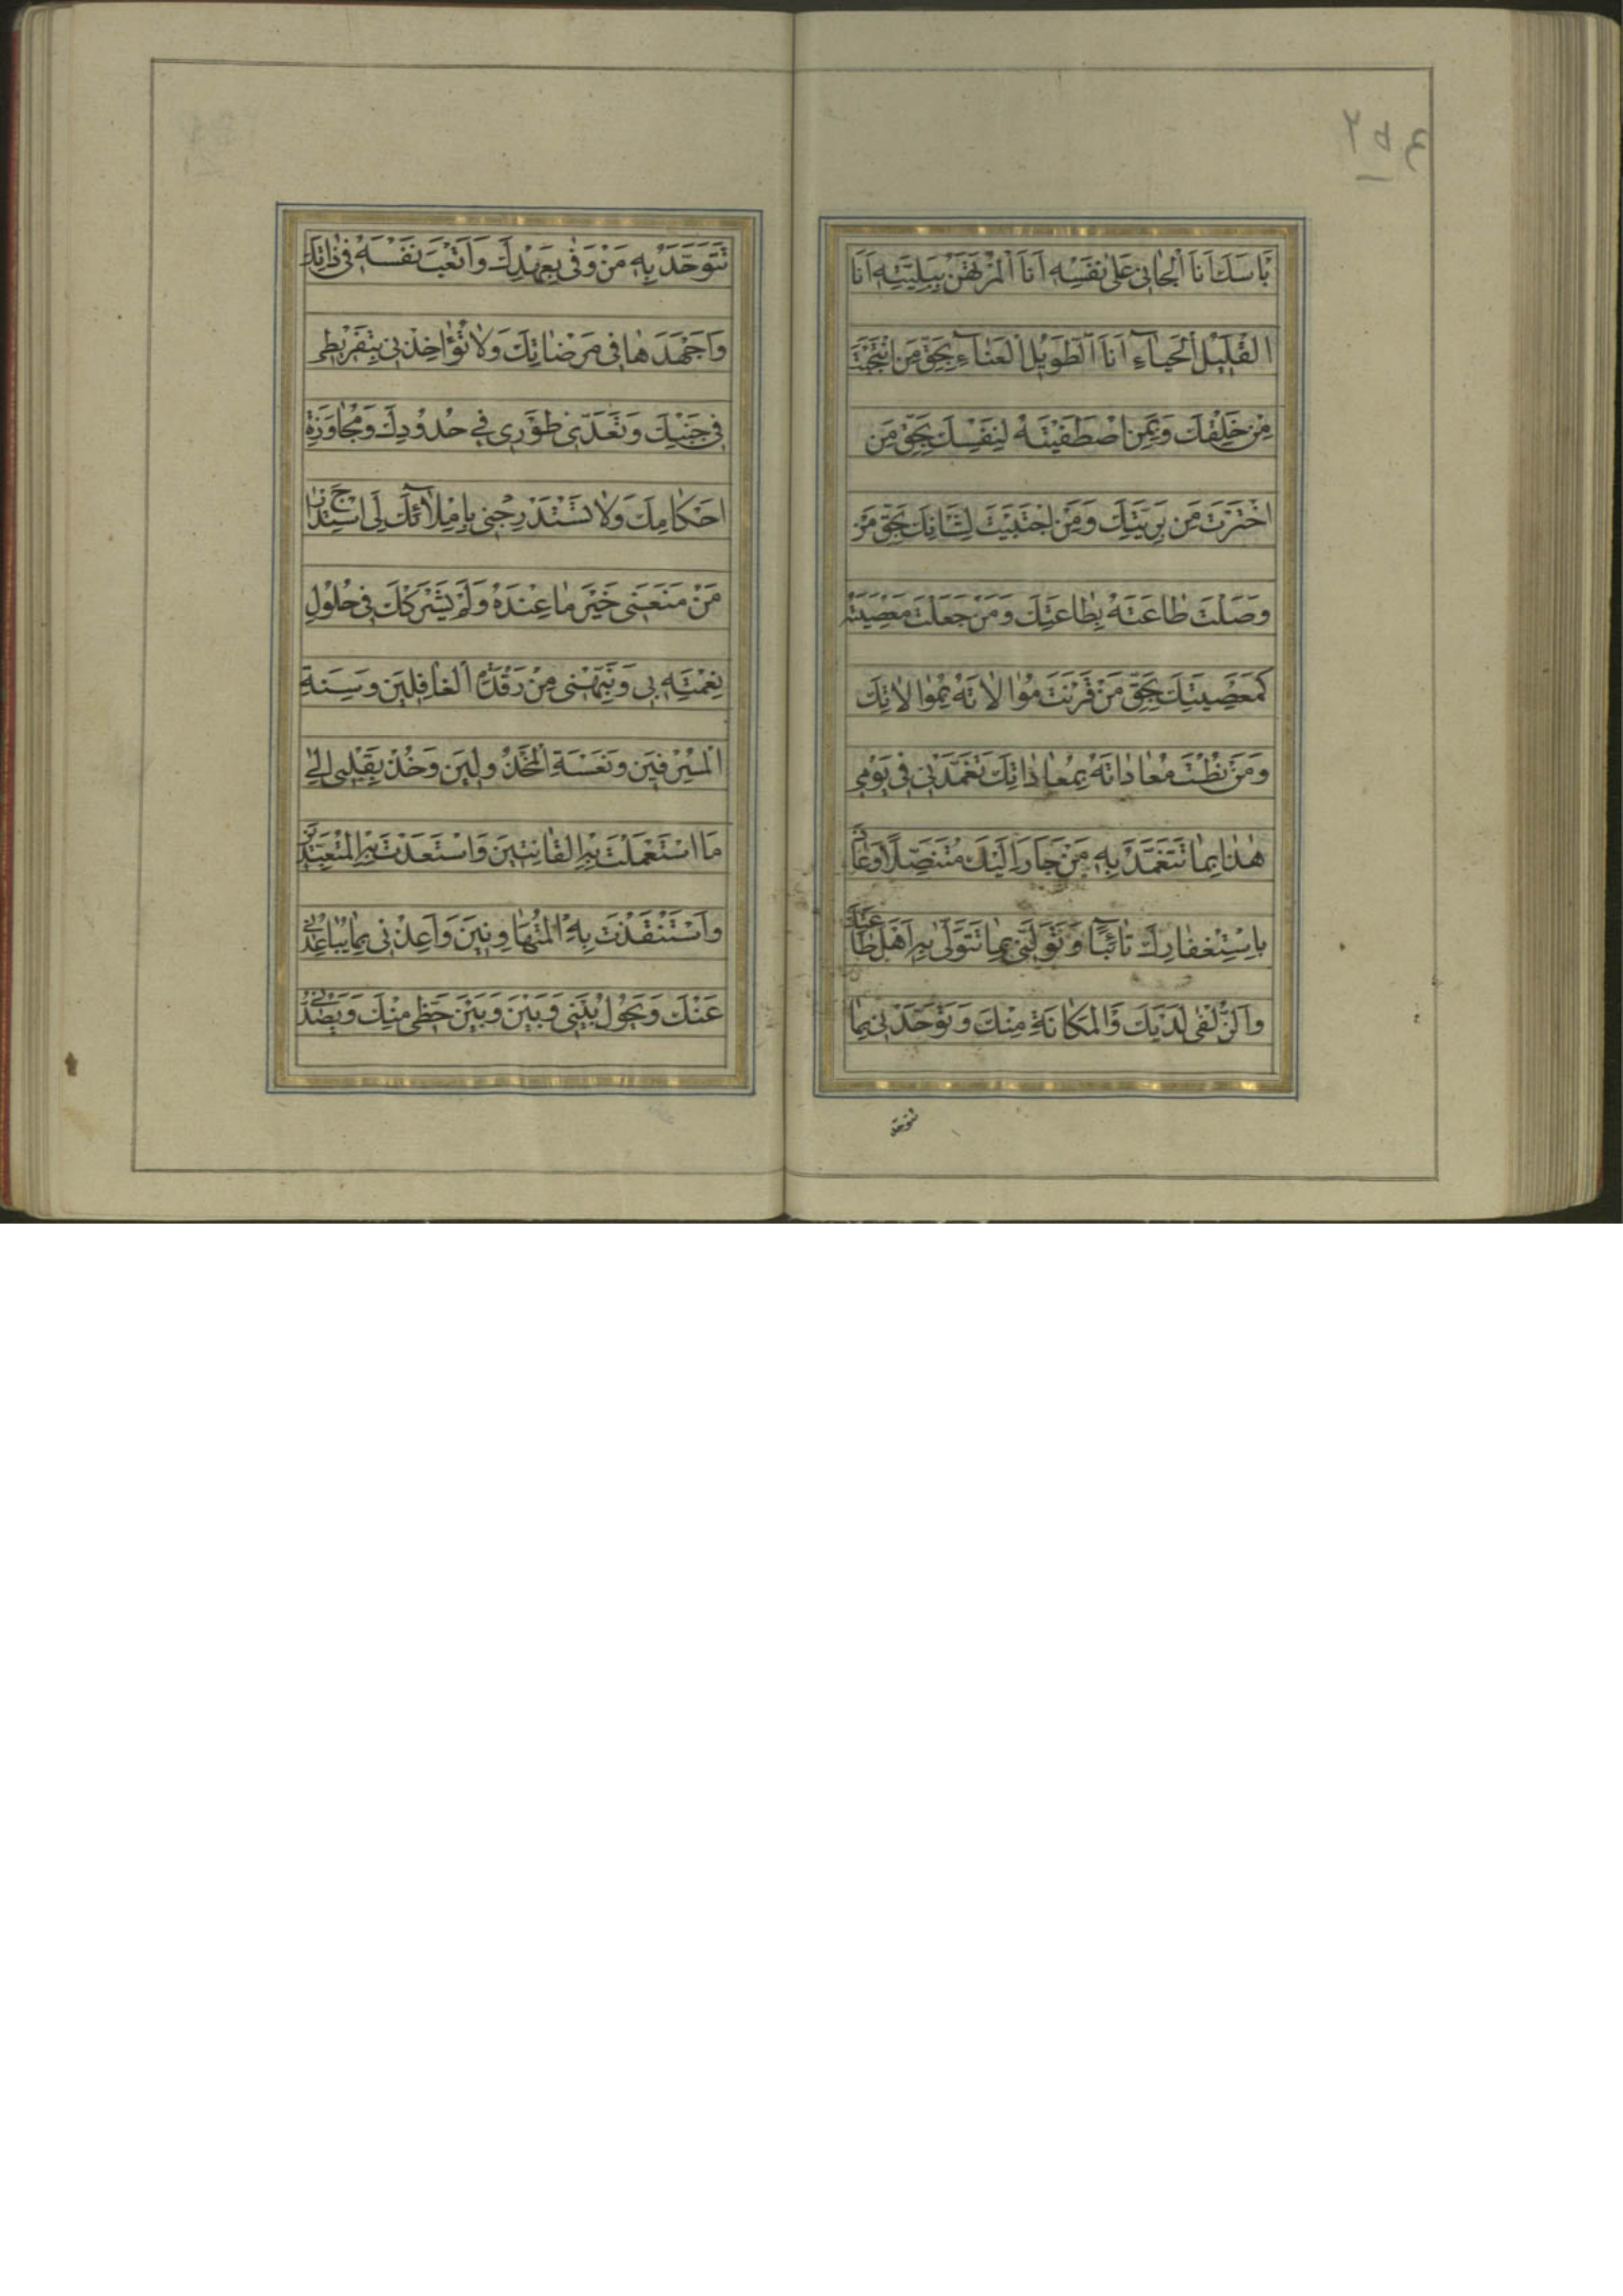 بَاْسَكَ اَنَا الْجانى عَلى نَفْسِهِ اَنَا الْمُرْتَهَنُ بِبَلِيَّتِهِ اَنَا
الْقَليلُ الْحَيآءِ اَنَا الطَّويلُ الْعَنآءِ بِحَقِّ مَنِ انْتَجَبْتَ
مِنْ خَلْقِكَ وَبِمَنِ اصْطَفَيْتَهُ لِنَفْسِكَ بِحَقِّ مَنِ
اخْتَرْتَ مِنْ بَرِيَّتِكَ وَمَنِ اجْتَبَيْتَ لِشَانِكَ بِحَقِّ مَنْ
وَصَلْتَ طاعَتَهُ بِطاعَتِكَ وَمَنْ جَعَلْتَ مَعْصِيَتَهُ
كَمَعْصِيَتِكَ بِحَقِّ مَنْ قَرَنْتَ مُوالاتَهُ بِمُوالاتِكَ
وَمَنْ نُطْتَ مُعاداتَهُ بِمُعاداتِكَ تَغَمَّدْنى فى يَوْمى
هٰذا بِما تَتَغَمَّدُ بِهِ مَنْ جَارَ اِلَيْكَ مُتَنَصِّلًا وَعاذَ
بِاسْتِغْفارِكَ تائِبًا وَتَوَلَّنى بِما تَتَوَلّى بِهِ اَهْلَ طاعَتِكَ
وَالزُّلْفى لَدَيْكَ وَالْمَكانَةِ مِنْكَ وَتَوَحَّدْنى بِما
تتوحد
تَتَوَحَّدُ بِهِ مَنْ وَفى بِعَهْدِكَ وَاَتْعَبَ نَفْسَهُ فى ذاتِكَ
وَاَجْهَدَها فى مَرْضاتِكَ وَلا تُؤاخِذْنى بِتَفْريطى
فى جَنْبِكَ وَتَعَدّى طَوْرى فى حُدُودِكَ وَمُجاوَزَةِ
اَحْكامِكَ وَلا تَسْتَدْرِجْنى بِاِمْلآئِكَ لى اسْتِدْراجَ
مَنْ مَنَعَنى خَيْرَ ما عِنْدَهُ وَلَمْ يَشْرَكْكَ فى حُلُولِ
نِعْمَتِهِ بى وَنَبِّهْنى مِنْ رَقْدَةِ الْغافِلينَ وَسِنَةِ
الْمُسْرِفينَ وَنَعْسَةِ الْمَخْذُولينَ وَخُذْ بِقَلْبى اِلى
مَا اسْتَعْمَلْتَ بِهِ الْقانِتينَ وَاسْتَعْبَدْتَ بِهِ الْمُتَعَبِّدينَ
وَاسْتَنْقَذْتَ بِهِ الْمُتَهاوِنينَ وَاَعِذْنى مِمّا يُباعِدُنى
عَنْكَ وَيَحُولُ بَيْنى وَبَيْنَ وَبَيْنَ حَظّى مِنْكَ وَيَصُدُّنى